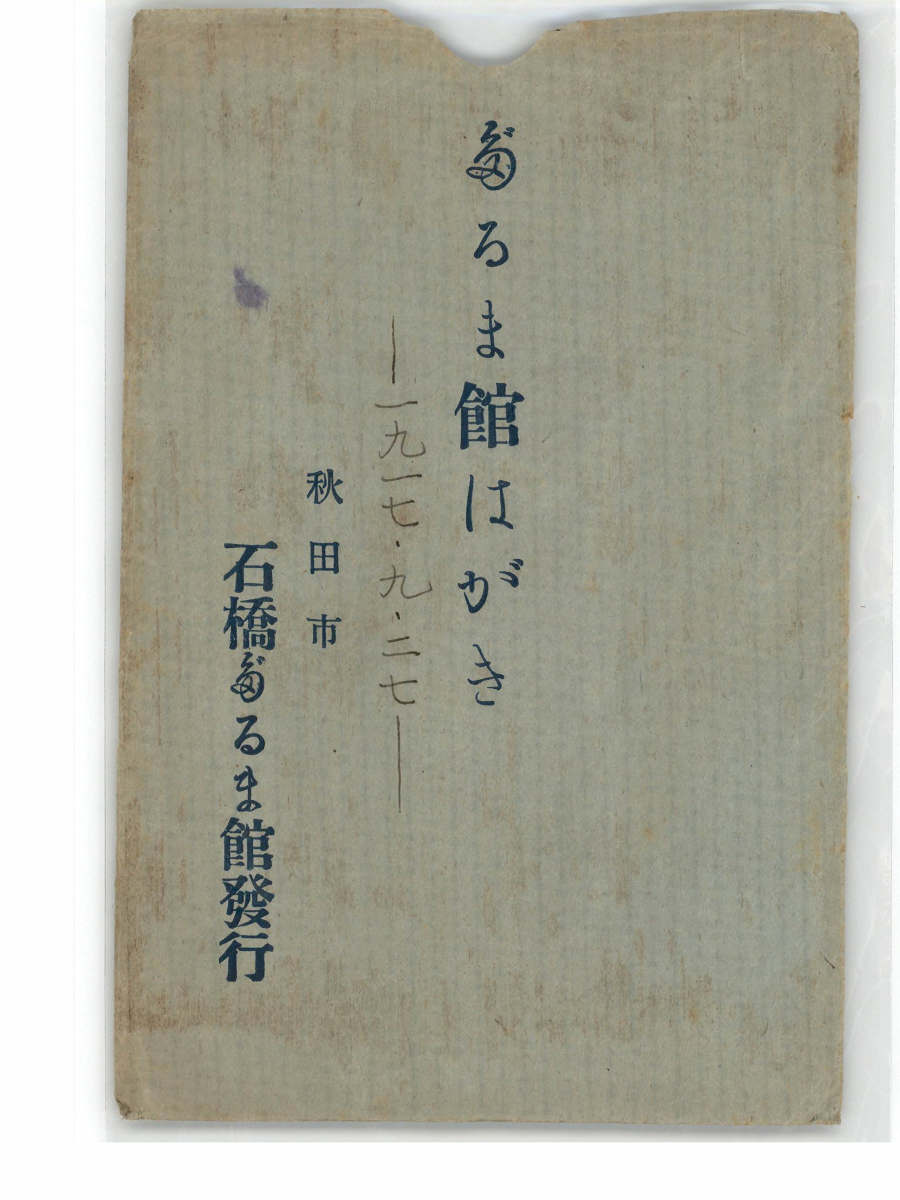 𛁠゙るま館はがき
—一九一七・九・二七—
秋田市
石橋𛁠゙るま館發行